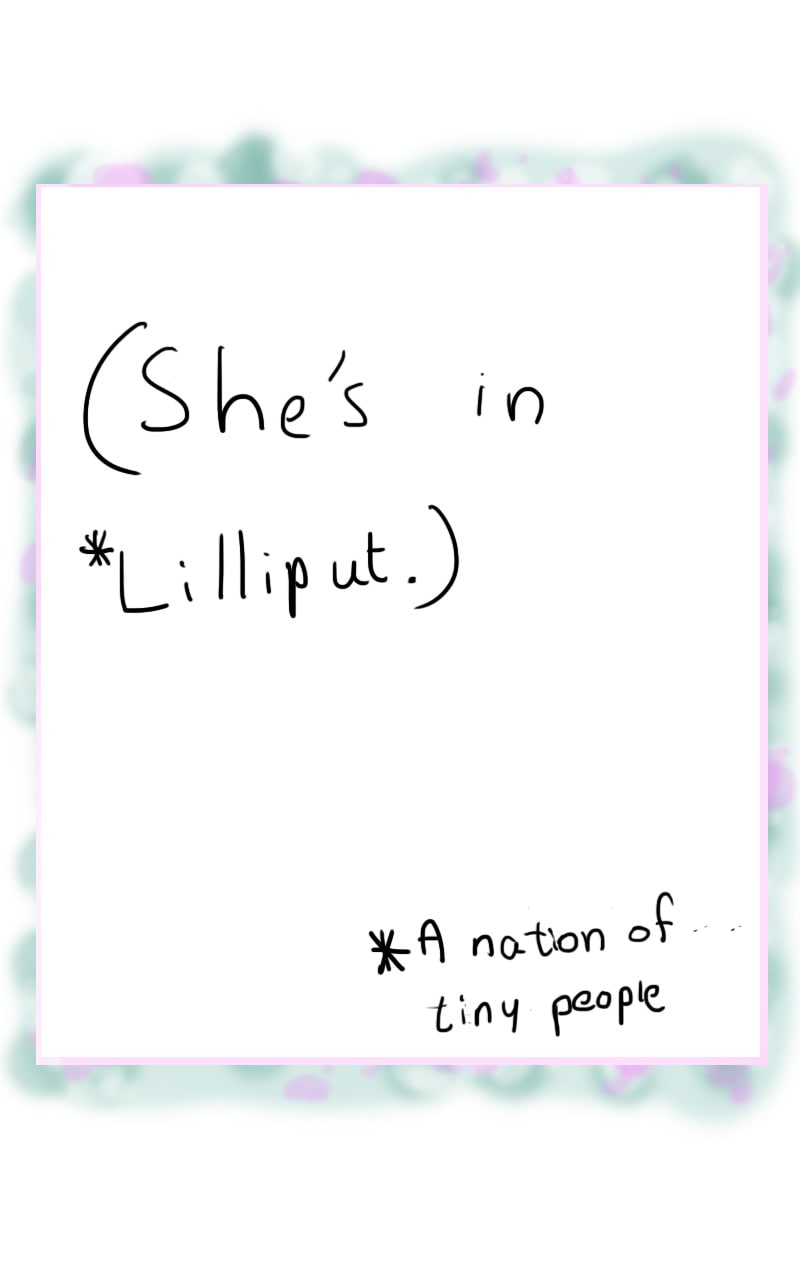 (She's in
*Lilliput.)
*A nation of
tiny people